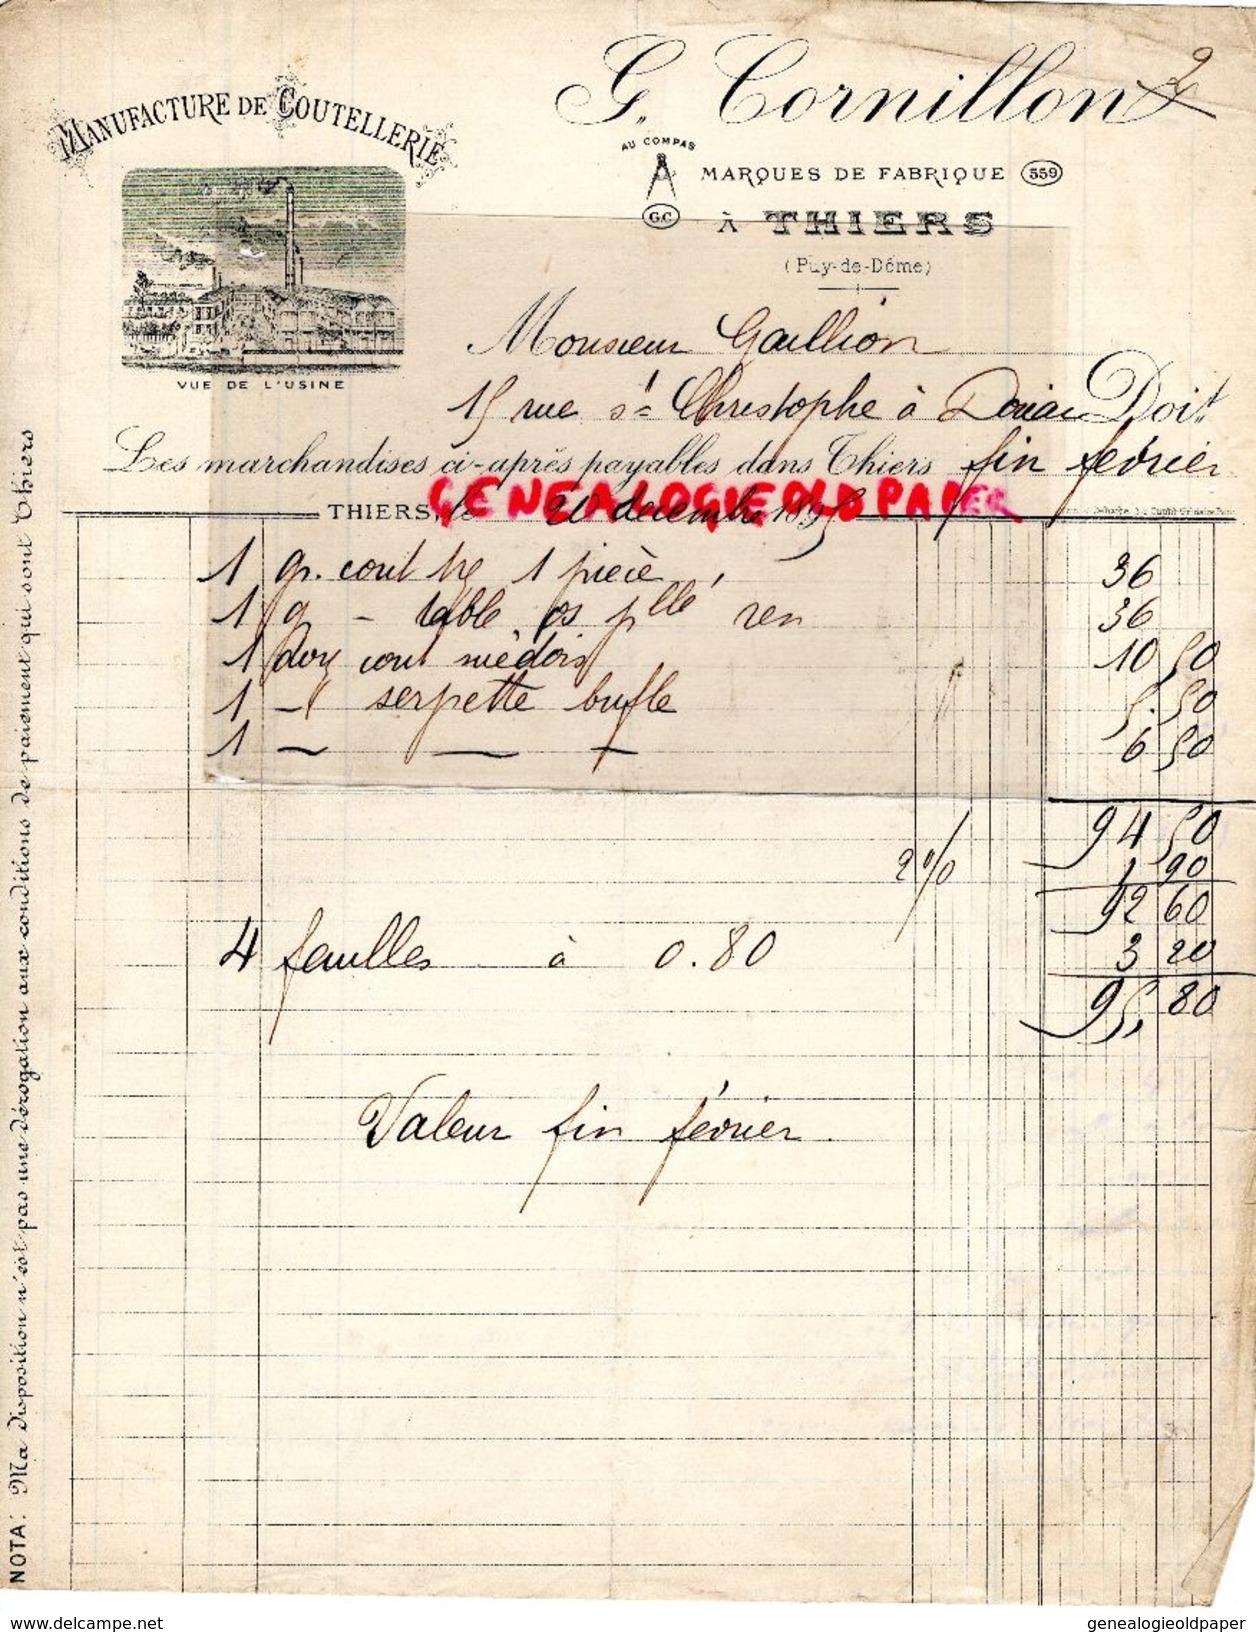 G. Cornillon
MANUFACTURE DE COUTELLERIE
AU COMPAS
MARQUES DE FABRIQUE 559
G.C
À THIERS
(Puy-de-Dôme)
VUE DE L'USINE
Monsieur Gaillon
15 rue St Christophe à Doit
Les marchandises ci-après payables dans Thiers fin février
GENEALOGIEOLDPAPER
THIERS, le 20 decembre 189
1 gr. cout 1 pièce 36
1 g - table os plle ren 36
1 douz cout 10 50
1 - serpette bufle 5.50
1 - - - 6 50
94 50
2% 1 90
92 60
4 feuilles à 0.80 3 20
95, 80
Valeur fin février.
NOTA: Ma disposition n'est pas une dérogation aux conditions de paiement qui sont Thiers
www.delcampe.net
genealogieoldpaper